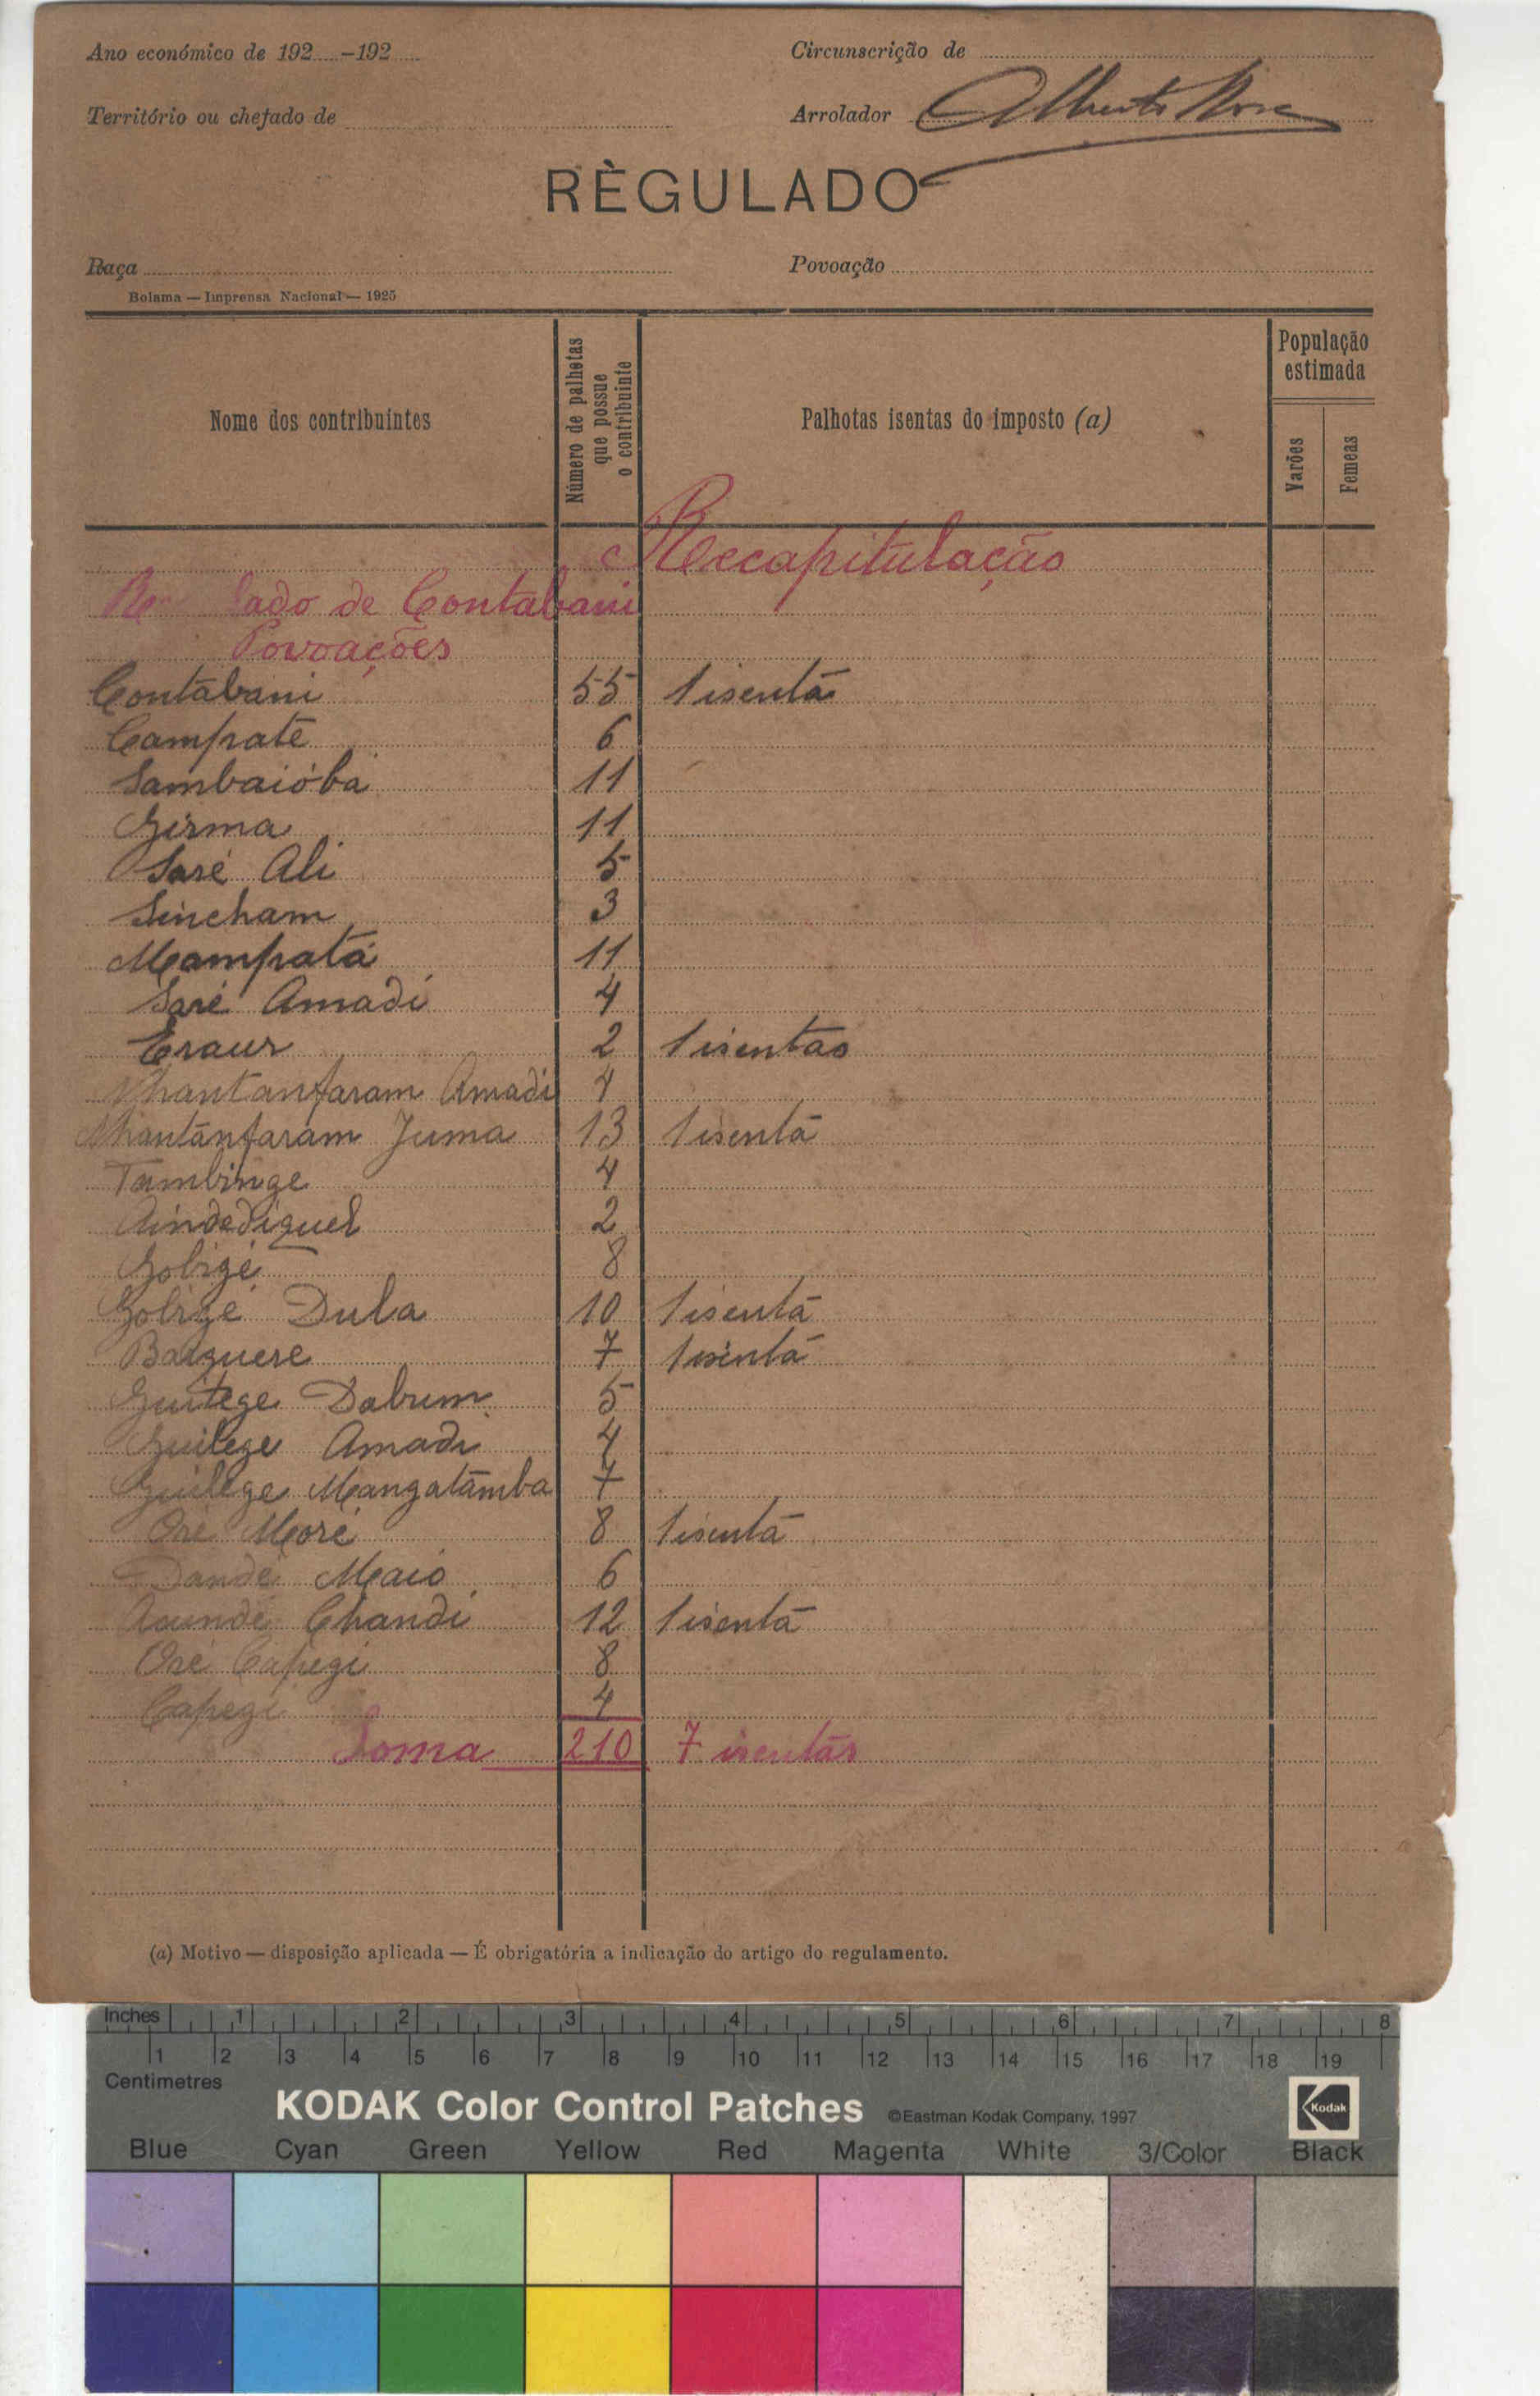 Ano económico de 192.....-192.....
Circunscrição de
Território ou chefado de
Arrolador Alberto
RÈGULADO
Raça
Povoação
Bolama — Imprensa Nacional — 1925
Nome dos contribuintes
Número de palhotas que possue o contribuinte
Palhotas isentas do imposto (a)
População estimada
Varões
Femeas
Recapitulação
lado de Contabani
Povoações
Contabani 55 1 isenta
Campate 6
Sambaióba 11
Girma 11
Saré Ali 5
Sincham 3
Mampatá 11
Saré Amadi 4
Eraur 2 1 isentas
Nhantanfaram Amadi 4
Nhantanfaram Juma 13 1 isenta
Tambinge 4
Aindediguel 2
Gobigé 8
Gobigé Dula 10 1 isenta
Barguere 7 1 isenta
Guilege Dabrum 5
Guilege Amadi 4
Guilege Mangatamba 7
Oré Moré 8 1 isenta
Dandé Maió 6
Aoundé Chandi 12 1 isenta
Oré Capegi 8
Capegi 4
Soma 210 7 isentas
(a) Motivo — disposição aplicada — É obrigatória a indicação do artigo do regulamento.
Inches 1 2 3 4 5 6 7 8
1 2 3 4 5 6 7 8 9 10 11 12 13 14 15 16 17 18 19
Centimetres
KODAK Color Control Patches ©Eastman Kodak Company, 1997 Kodak
Blue Cyan Green Yellow Red Magenta White 3/Color Black